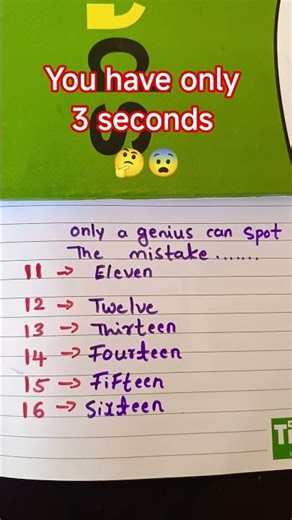 You have only
3 seconds
🤔😨
only a genius can spot
The mistake.......
11 → Eleven
12 → Twelve
13 → Thirteen
14 → Fourteen
15 → FiFteen
16 → Sixteen
Ti